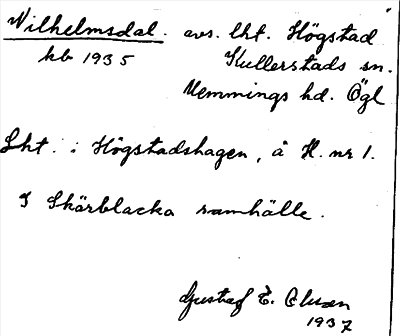 Wilhelmsdal. avs. lht. Högstad
kb 1935 Kullerstads sn.
Memmings hd. Ögl
Lht. i Högstadshagen, å H. nr 1.
I Skärblacka samhälle.
Gustaf E. Olsson
1937